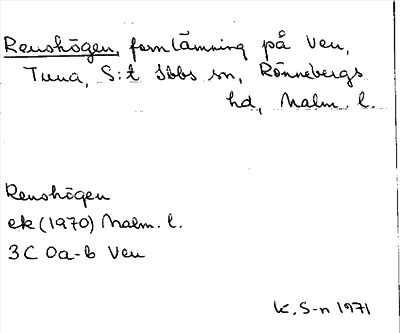 Renshögen, fornlämning på Ven,
Tuna, S:t Ibbs sn, Rönnebergs
hd, Malm. l.
Renshögen
ek (1970) Malm. l.
3C 0a-b Ven
K. S-n 1971